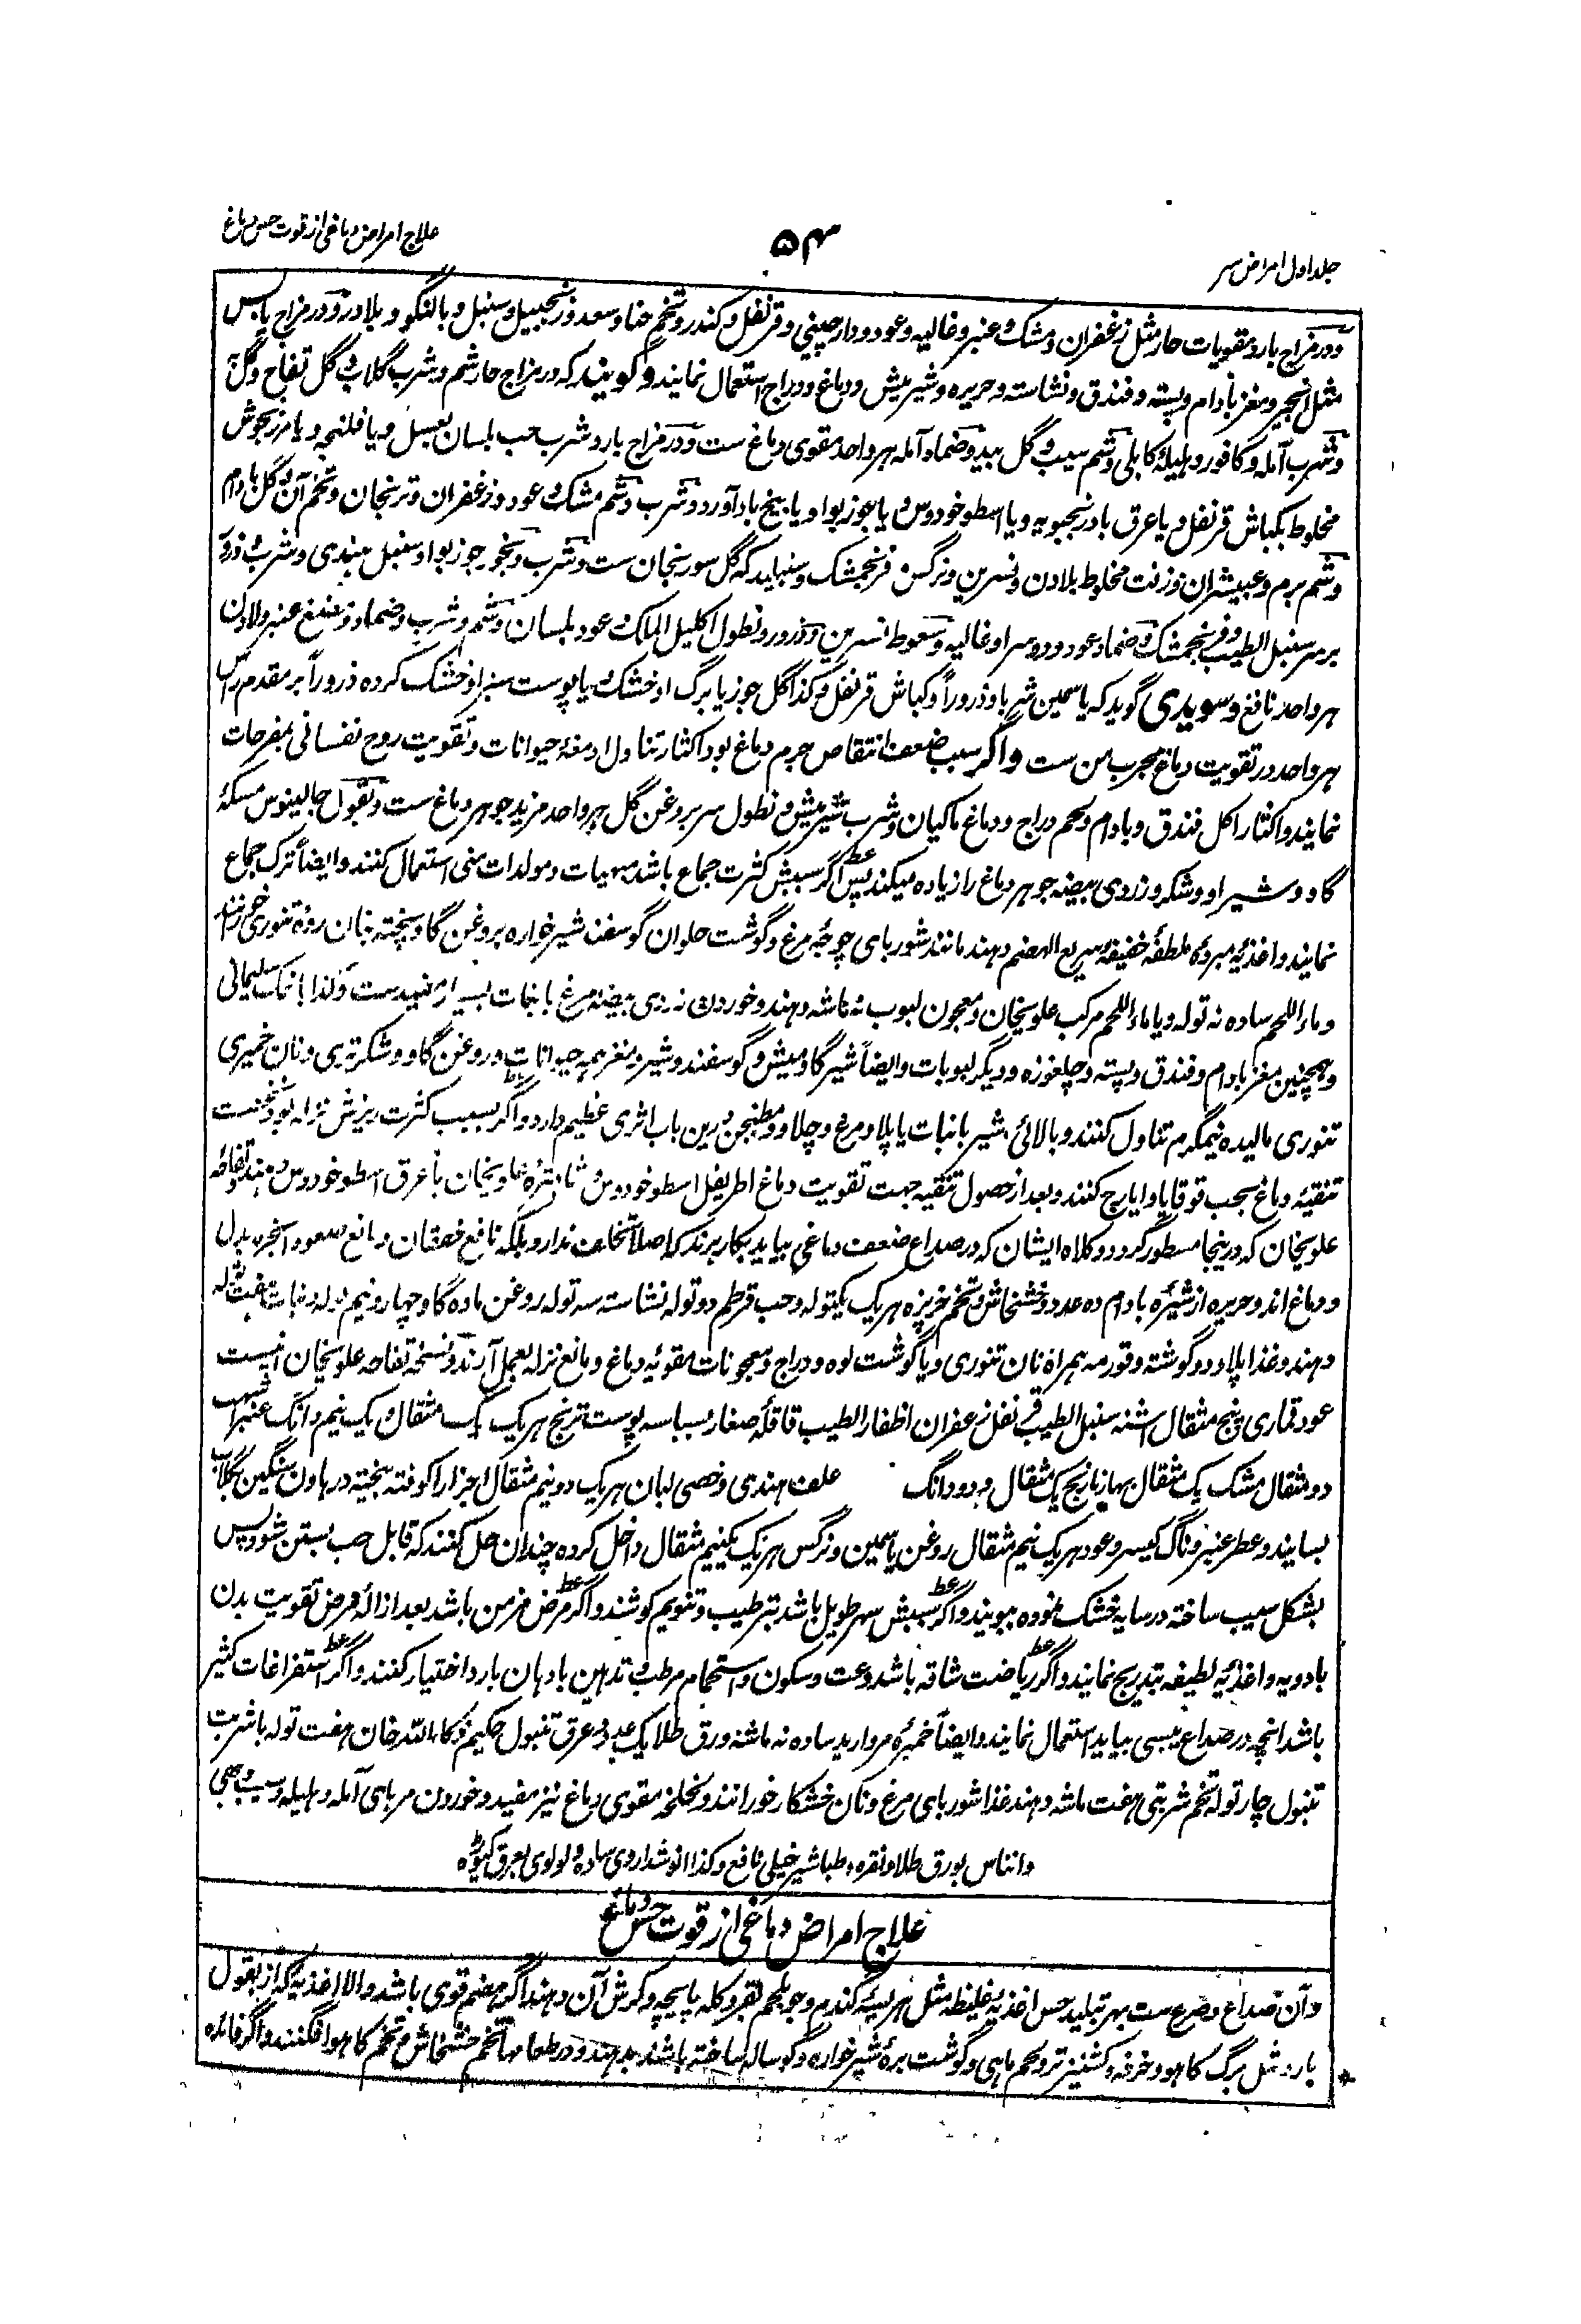 جلد اول امراض سر
۵۴
علاج امراض دماغی از قوت حس دماغ
و در مزاج بارد مقویات حار مثل زعفران و مشک و عنبر و غالیه و عود و دارچینی و قرنفل و کندر و تخم حنا و سعد و زنجبیل و سنبل و بالنگو و بلادر و در مزاج یابس
مثل انجیر و مغز بادام و پسته و فندق و نشاسته و حریره و شیر میش و دماغ و دراج استعمال نمایند و گویند که در مزاج حار شم و شرب گلاب و گل تفاح و گل
و شرب آمله و کافور و هلیله کابلی و شم سیب و گل بید و ضماد آمله هر واحد مقوی دماغ ست و در مزاج بارد شرب حب بلسان بعسل و یا فلنجه و یا مرزنجوش
مخلوط بکباش قرنفل و یا عرق بادرنجبویه و یا اسطوخودوس و یا جوزبوا و یا بیخ بادآورد و شرب و شم مشک و عود و زعفران و ترنجان و تخم آن و گل بادام
و شم برم و عبیثران و زفت مخلوط بلادن و نسرین و نرگس و فرنجمشک و سنبلید که گل سورنجان ست و شرب و بخور جوزبوا و سنبل هندی و شرب و ذرور
بر سر سنبل الطیب و فرنجمشک و ضماد عود و دوسر او غالیه و سعوط نسرین و ذرور و نطول اکلیل الملک و عود بلسان و شم و شرب و ضماد و مضغ عنبر و لادن
هر واحد نافع و سویدی گوید که یاسمین شربا و ذروراً و کباش قرنفل و کذا گل جوز یا برگ او خشک و یا پوست سبز او خشک کرده ذروراً بر مقدم راس
هر واحد در تقویت دماغ مجرب من ست و اگر سبب ضعف انتقاص جرم دماغ بود اکثار تناول ادمغهٔ حیوانات و تقویت روح نفسانی بمفرحات
نمایند و اکثار اکل فندق و بادام و لحم دراج و دماغ ماکیان و شرب شیر میش و نطول سر بروغن گل هر واحد مزید جوهر دماغ ست و بقول جالینوس مسکهٔ
گاو و شیر او و شکر و زردی بیضه جوهر دماغ را زیاده میکند پس اگر سببش کثرت جماع باشد مبهیات و مولدات منی استعمال کنند و ایضاً ترک جماع
نمایند و اغذیه مبرده ملطفه خفیفه سریع الهضم دهند مانند شوربای چوجهٔ مرغ و گوشت حلوان گوسفند شیرخواره بروغن گاو پخته بنان روهٔ تنوری خورانند
و ماء اللحم ساده نه توله و یا ماء اللحم مرکب علویخان و معجون لبوب نه ماشه دهند و خوردن زردی بیضه مرغ با نبات بسیار مفید ست و کذا با نمک سلیمانی
و همچنین مغز بادام و فندق و پسته و چلغوزه و دیگر لبوبات و ایضاً شیر گاومیش و گوسفند و شیر و مغز همه حیوانات و روغن گاو و شکر تری و نان خمیری
تنوری مالیده نیمگرم تناول کنند و بالائی شیر با نبات یا پلاو مرغ و چلاو و مطنجن درین باب اثری عظیم دارد و اگر بسبب کثرت ریزش نزله بود نخست
تنقیهٔ دماغ بحب قوقایا و ایارج کنند و بعد از حصول تنقیه جهت تقویت دماغ اطریفل اسطوخودوس و شاهتره علویخان با عرق اسطوخودوس دهند و تفاحه
علویخان که درینجا مسطور گردد و کلاه ایشان که در صداع ضعف دماغی بیاید بکار برند که اصلاً تخلف ندارد بلکه نافع خفقان و مانع صعود ابخره بدل
و دماغ اند و حریره از شیرهٔ بادام ده عدد و خشخاش و تخم خرپزه هر یک یکتوله و حب قرطم دو توله نشاسته سه توله روغن ماده گاو چهار و نیم توله و نبات هفت توله
دهند و غذا پلاو و گوشته و قورمه همراه نان تنوری و یا گوشت لوه و دراج و معجونات مقویه دماغ و مانع نزله بعمل آرند و نسخه تفاحه علویخان اینست
عود قماری پنج مثقال اشنه سنبل الطیب قرنفل زعفران اظفار الطیب قاقله صغار بسباسه پوست ترنج هر یک یک مثقال و یک نیم دانگ عنبر اشهب
دو مثقال مشک یک مثقال بهار نارنج یک مثقال و دو دانگ علف هندی و خصی لبان هر یک دو نیم مثقال اجزا را کوفته بیخته در هاون سنگین بگلاب
بسایند و عطر عنبر و ناگ کیسر و عود هر یک نیم مثقال روغن یاسمین و نرگس هر یک یکنیم مثقال داخل کرده چندان حل کنند که قابل حب بستن شود پس
بشکل سیب ساخته در سایه خشک نموده ببویند و اگر سببش سهر طویل باشد بترطیب و تنویم کوشند و اگر مرض مزمن باشد بعد از ازالهٔ مرض تقویت بدن
بادویه و اغذیه لطیفه بتدریج نمایند و اگر ریاضت شاقه باشد دعت و سکون و استحمام مرطب و تدهین بادهان بارد اختیار کنند و اگر استفراغات کثیر
باشد آنچه در صداع یبسی بیاید استعمال نمایند و ایضاً خمیره مروارید ساده نه ماشه ورق طلا یک عدد و عرق تنبول حکیم ذکاء الله خان هفت توله با شربت
تنبول چار توله تخم شربتی هفت ماشه دهند غذا شوربای مرغ و نان خشکار خورانند و لخلخه مقوی دماغ نیز مفید و خوردن مربای آمله و هلیله و سیب و بهی
و انناس بورق طلا و نقره و طباشیر خیلی نافع و کذا انوشداروی ساده و لولوی بعرق کیوڑه
علاج امراض دماغی از قوت حس دماغ
و آن صداع و صرع ست بهر تبلید حس اغذیه غلیظه مثل هریسهٔ گندم و جو بلحم بقر و کله پاچه و کرش آن دهند اگر هضم قوی باشد والا اغذیه که از بقول
بارد مثل برگ کاهو و خرفه و کشنیز تر و لحم ماهی و گوشت برهٔ شیرخواره و گوساله ساخته باشند بدهند و در طعامها تخم خشخاش و تخم کاهو افگنند و اگر فائده